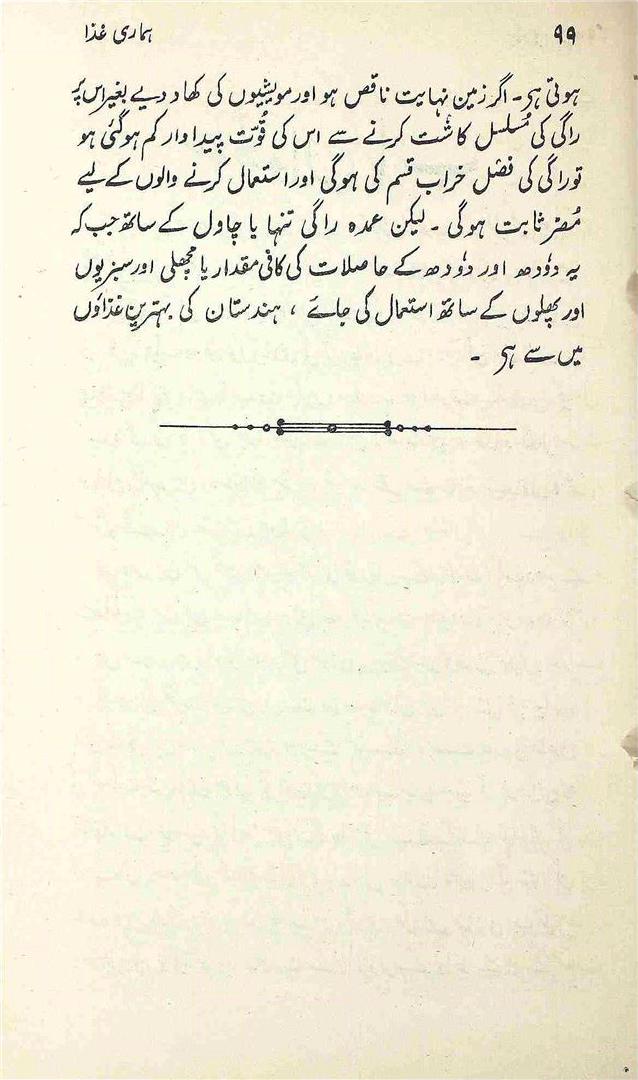 ۹۹
ہماری غذا
ہوتی ہی۔ اگر زمین نہایت ناقص ہو اور مویشیوں کی کھاد دیے بغیر اس پر
راگی کی مُسلسل کاشت کرنے سے اس کی قُوّت پیداوار کم ہوگئی ہو
تو راگی کی فصل خراب قسم کی ہوگی اور استعمال کرنے والوں کے لیے
مُضر ثابت ہوگی ۔ لیکن عمدہ راگی تنہا یا چاول کے ساتھ جب کہ
یہ دوٗدھ اور دوٗدھ کے حاصلات کی کافی مقدار یا مچھلی اور سبزیوں
اور پھلوں کے ساتھ استعمال کی جائے ، ہندستان کی بہترین غذاؤں
میں سے ہی ۔